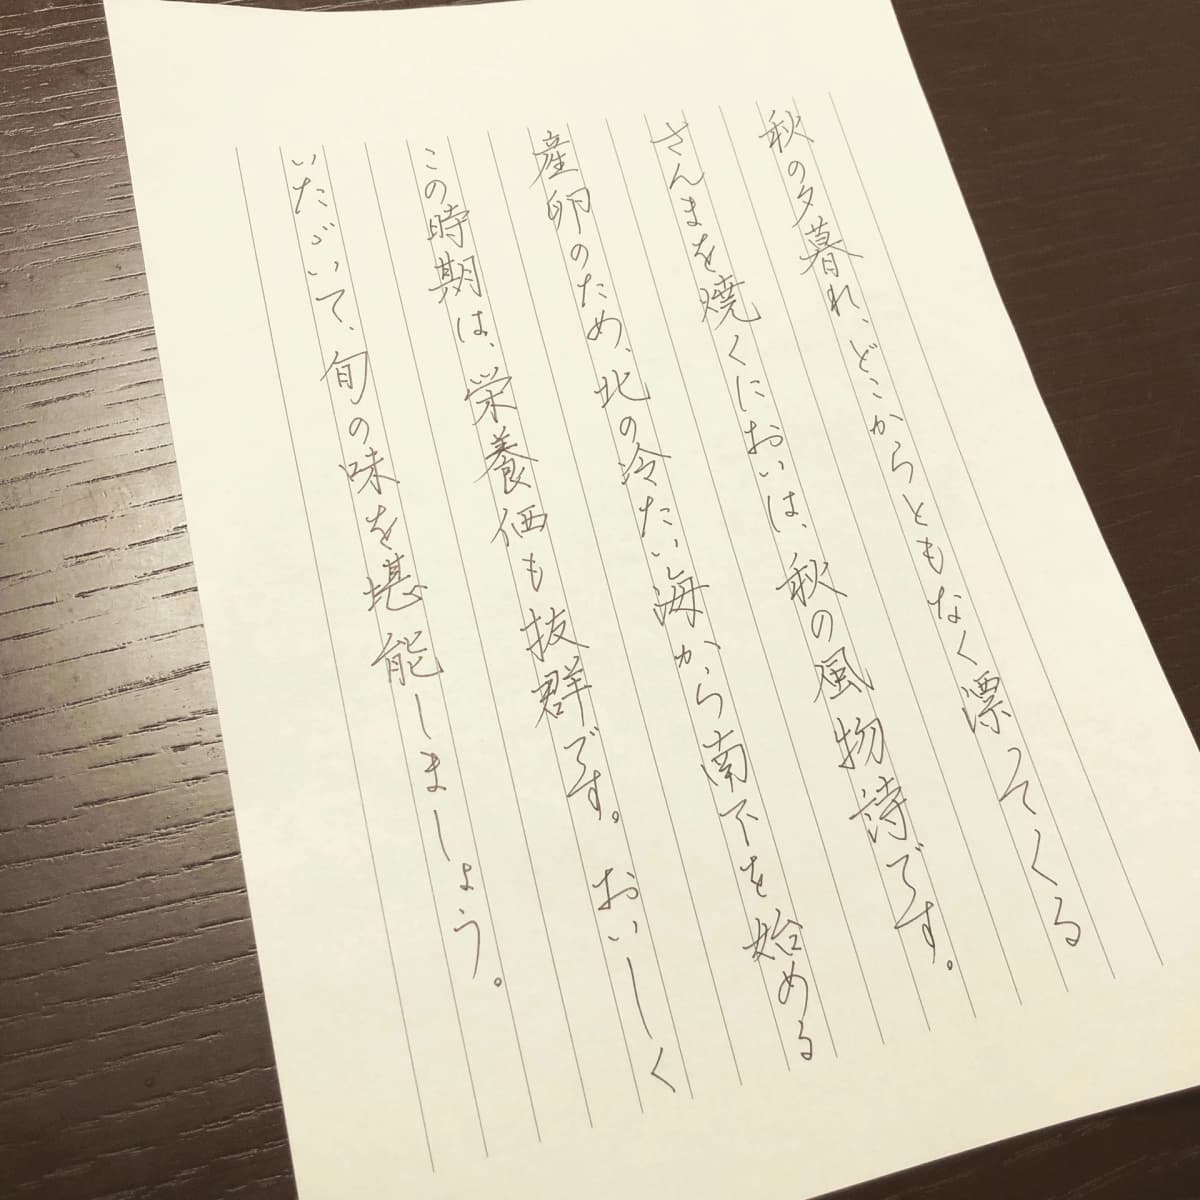 秋の夕暮れ、どこからともなく漂ってくる
さんまを焼くにおいは、秋の風物詩です。
産卵のため、北の冷たい海から南下を始める
この時期は、栄養価も抜群です。おいしく
いただいて、旬の味を堪能しましょう。